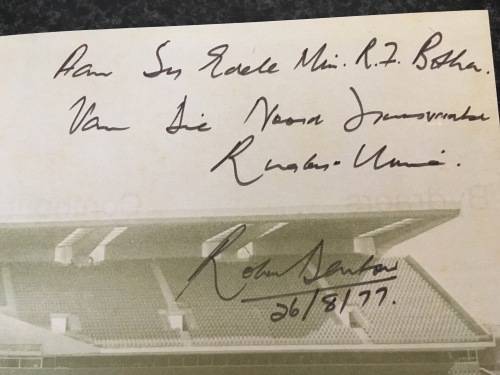 Aan Sy Edele Min. R.F. Botha.
Van Die Noord Transvaalse
Rugby-Unie.
26/8/77.